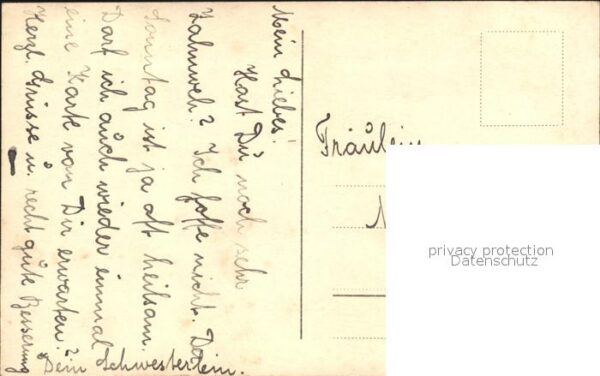 Mein Liebes!
Hast Du noch sehr
Zahnweh? Ich hoffe nicht. Der
Sonntag ist ja oft heilsam.
Darf ich auch wieder einmal
eine Karte von Dir erwarten?
Herzl. Grüsse u. recht gute Besserung
Dein Schwesterlein.
Fräulein
privacy protection
Datenschutz